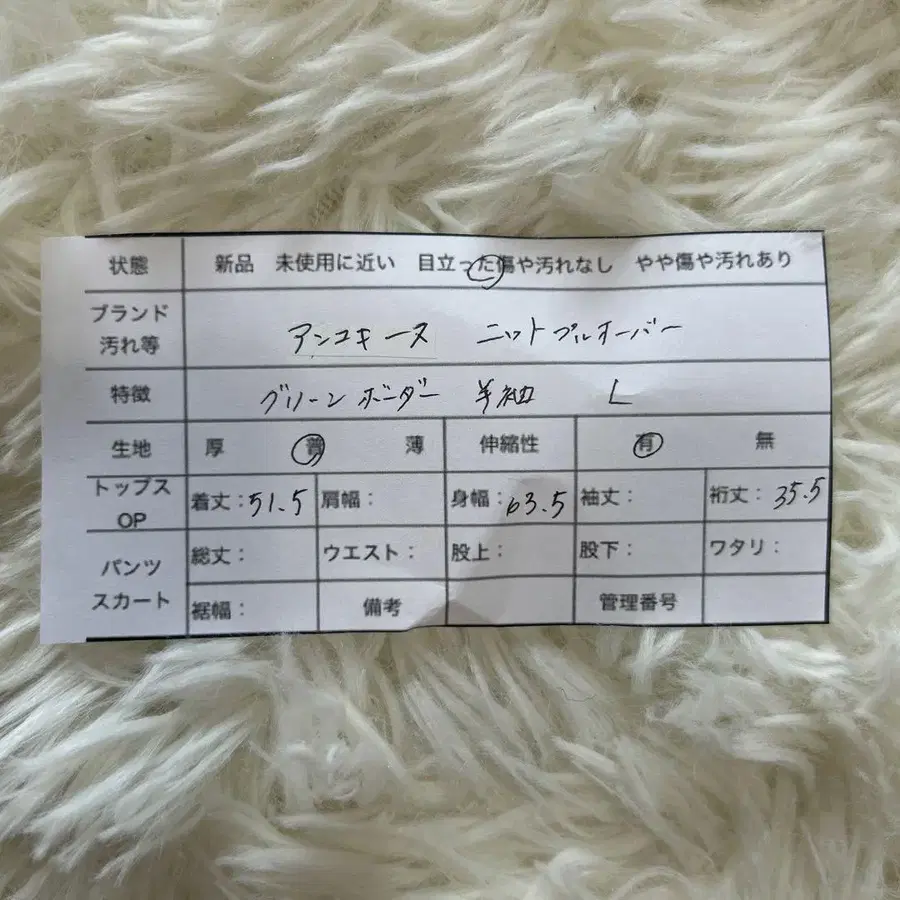 状態 新品 未使用に近い 目立った傷や汚れなし やや傷や汚れあり
ブランド
汚れ等 アンコキーヌ ニットプルオーバー
特徴 グリーンボーダー 半袖 L
生地 厚 普 薄 伸縮性 有 無
トップス
OP 着丈:51.5 肩幅: 身幅:63.5 袖丈: 裄丈:35.5
パンツ
スカート 総丈: ウエスト: 股上: 股下: ワタリ:
裾幅: 備考 管理番号